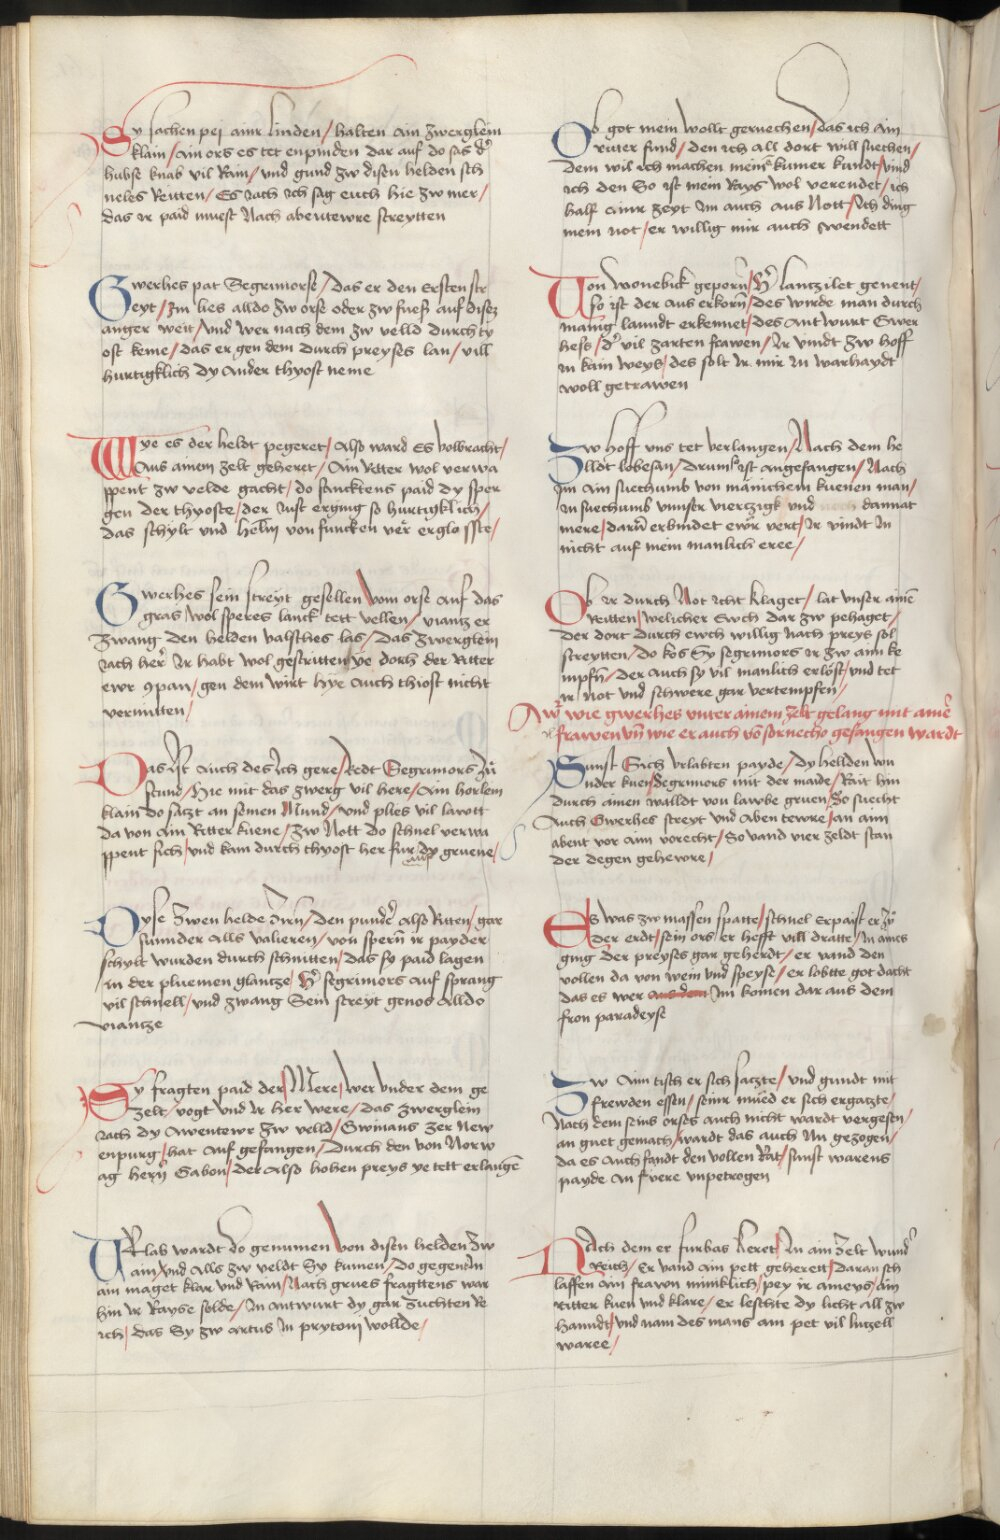 Sy sachen pej ainr linden / halten ain zwerglein
klain / ain ors es tet enpinden dar auf do sas dˀ
hubse knab vil Rain / vnd gund zw disen helden sch
neles Reitten / Es iach ich sag euch hie zw mer /
das ir paid muest Nach abentewre streytten
Gwerhes pat Segrimorse / das er den Ersten str
eyt / Im lies alldo zw orse oder zw fuess auf diser
anger weit / vnd wer nach dem zw velld durch ty
ost keme / das er gen dem durch preyses lan / vill
hurtigklich dy ander thyost neme
Wye es der heldt pegeret / Also ward Es volbracht /
Aus ainem zelt geheret / Ain Ritter wol verwa
ppent zw velde gacht / do sancktens paid dy sper
gen der thyoste / der Just erging so hurtigklich /
das schylt vnd helm von funcken ver erglosste /
Gwerhes sein streyt gesellen / vom orse auf das
gras / wol speres lanck tett vellen / vianz er
zwang den helden valsches las / Das zwerglein
iach herˀ Ir habt wol gestritten / ye doch der Ritter
ewr 9pan / gen dem wirt hye auch thiost nicht
vermitten /
Das Ist auch des Ich gere / Redt Segrimors zů
stund / Hie mit das zwerg vil here / Ain hornlein
klain do sazt an seinen Mund / vnd plies vil lawtt
da von ain Ritter kuene / zw Nott do schnel verwa
ppent sich / vnd kam durch thyost her fur auf dy gruene /
Dyse zwen helde zirn / den pundˀ also Riten / gar
sunnder alls valieren / von spern ir payder
schylt wurden durch schnitten / das sy paid lagen
in der pluemen glantze / hˀ segrimors auf sprang
vil schnell / vnd zwang Sein streyt genos alldo
viantze
Sy fragten paid der Mere / wer vnder dem ge
zelt / vogt vnd Ir her were / das zwerglein
iach dy Awentewr zw velld / Gwinans zer New
enpurg / hat auf gefangen / Durch den von Norw
ag herñ Gabon / der also hohen preys ye tett erlangē
Vrlab wardt do genumen / von disen helden zw
ain / vnd alls zw veldt Sy kumen / do gegent In
ain maget klar vnd Rain / Nach grues fragttens war
hin Ir Rayse solde / In antwurt dy gar zuchten Re
ich / das Sy zw artus In prytonj wollde /
Ob got mein wollt geruechen / das ich ain
riter fund / den ich all dort will suechen /
Dem wil ich machen meinˀ kumer kundt / vind
ich den So ist mein Rays wol verendet / ich
half ainr zeyt Im auch aus Nott / Ich ding
mein not / er willig mir auch wendett
Von wonebick geporñ / hˀ lantzilet genent /
so ist der aus erkorñ / des wirde man durch
manig lanndt erkennet / des antwurt Gwer
hess / dˀ vil zarten frawen / Ir vindt zw hoff
in kain weys / des solt Ir mir in warhaydt
woll getrawen
Zw hoff vns tet verlangen / Nach dem he
lldt lobesan / drumb ist angefangen / Nach
Im ain suechumb von mānichem kuenen man /
In suechumb vnnser vierzigk vnd dannat
mere / darū erbindet ewr vert / Ir vindt In
nicht auf mein manlich eree /
Ob ir durch Not icht klaget / lat vnser aīne
Ritten / welicher Ewch dar zw pehaget /
der dort durch ewch willig nach preys sol
streytten / do kos Sy segrimors ir zw aim ke
mpfn / der auch sy vil manlich erlost / vnd tet
ir not vnd schwere gar vertempfen /
Awˀ wie gwerhes vnter ainem zelt gelang mit aīnē
frawen vñ wie er auch võ sornecho gefangen wardt
Sunst Sich vrlabten payde / dy hellden vn
nder kuen / Segrimors mit der maide / Rait hin
durch ainen walldt von lawbe gruen / So suecht
Auch Gwerhes streyt vnd aben tewre / an aim
abent vor aim vorecht / So vand vier zeldt stan
der degen gehewre /
Es was zw massen spatte / schnel erpaist er zů
der erdt / sein ors er hefft vill dratte / In aines
ging der preyses gar geherdt / er vand den
vollen da von wein vnd speyse / er lobtte got dacht
das es wer Im komen dar aus dem
fron paradeyse
Zw aim tisch er sich satzte / vnd gundt mit
frewden essen / seinr mued er sich ergatzte /
Nach dem seins orses auch nicht wardt vergessen /
an guet gemach / wardt das auch an gezogen /
da es auch fandt den vollen Rat / sunst warens
payde an fuere vnpetrogen
Nach dem er furbas keret / In ain zelt wundˀ
Reich / Er vand ain pett geherett / daran sch
laffen ain frawn minniklich / pey ir ameys / ain
ritter kuen vnd klare / er leschte dy licht all zw
hanndt / vnd nam des mans am pet vil lutzell
waree /